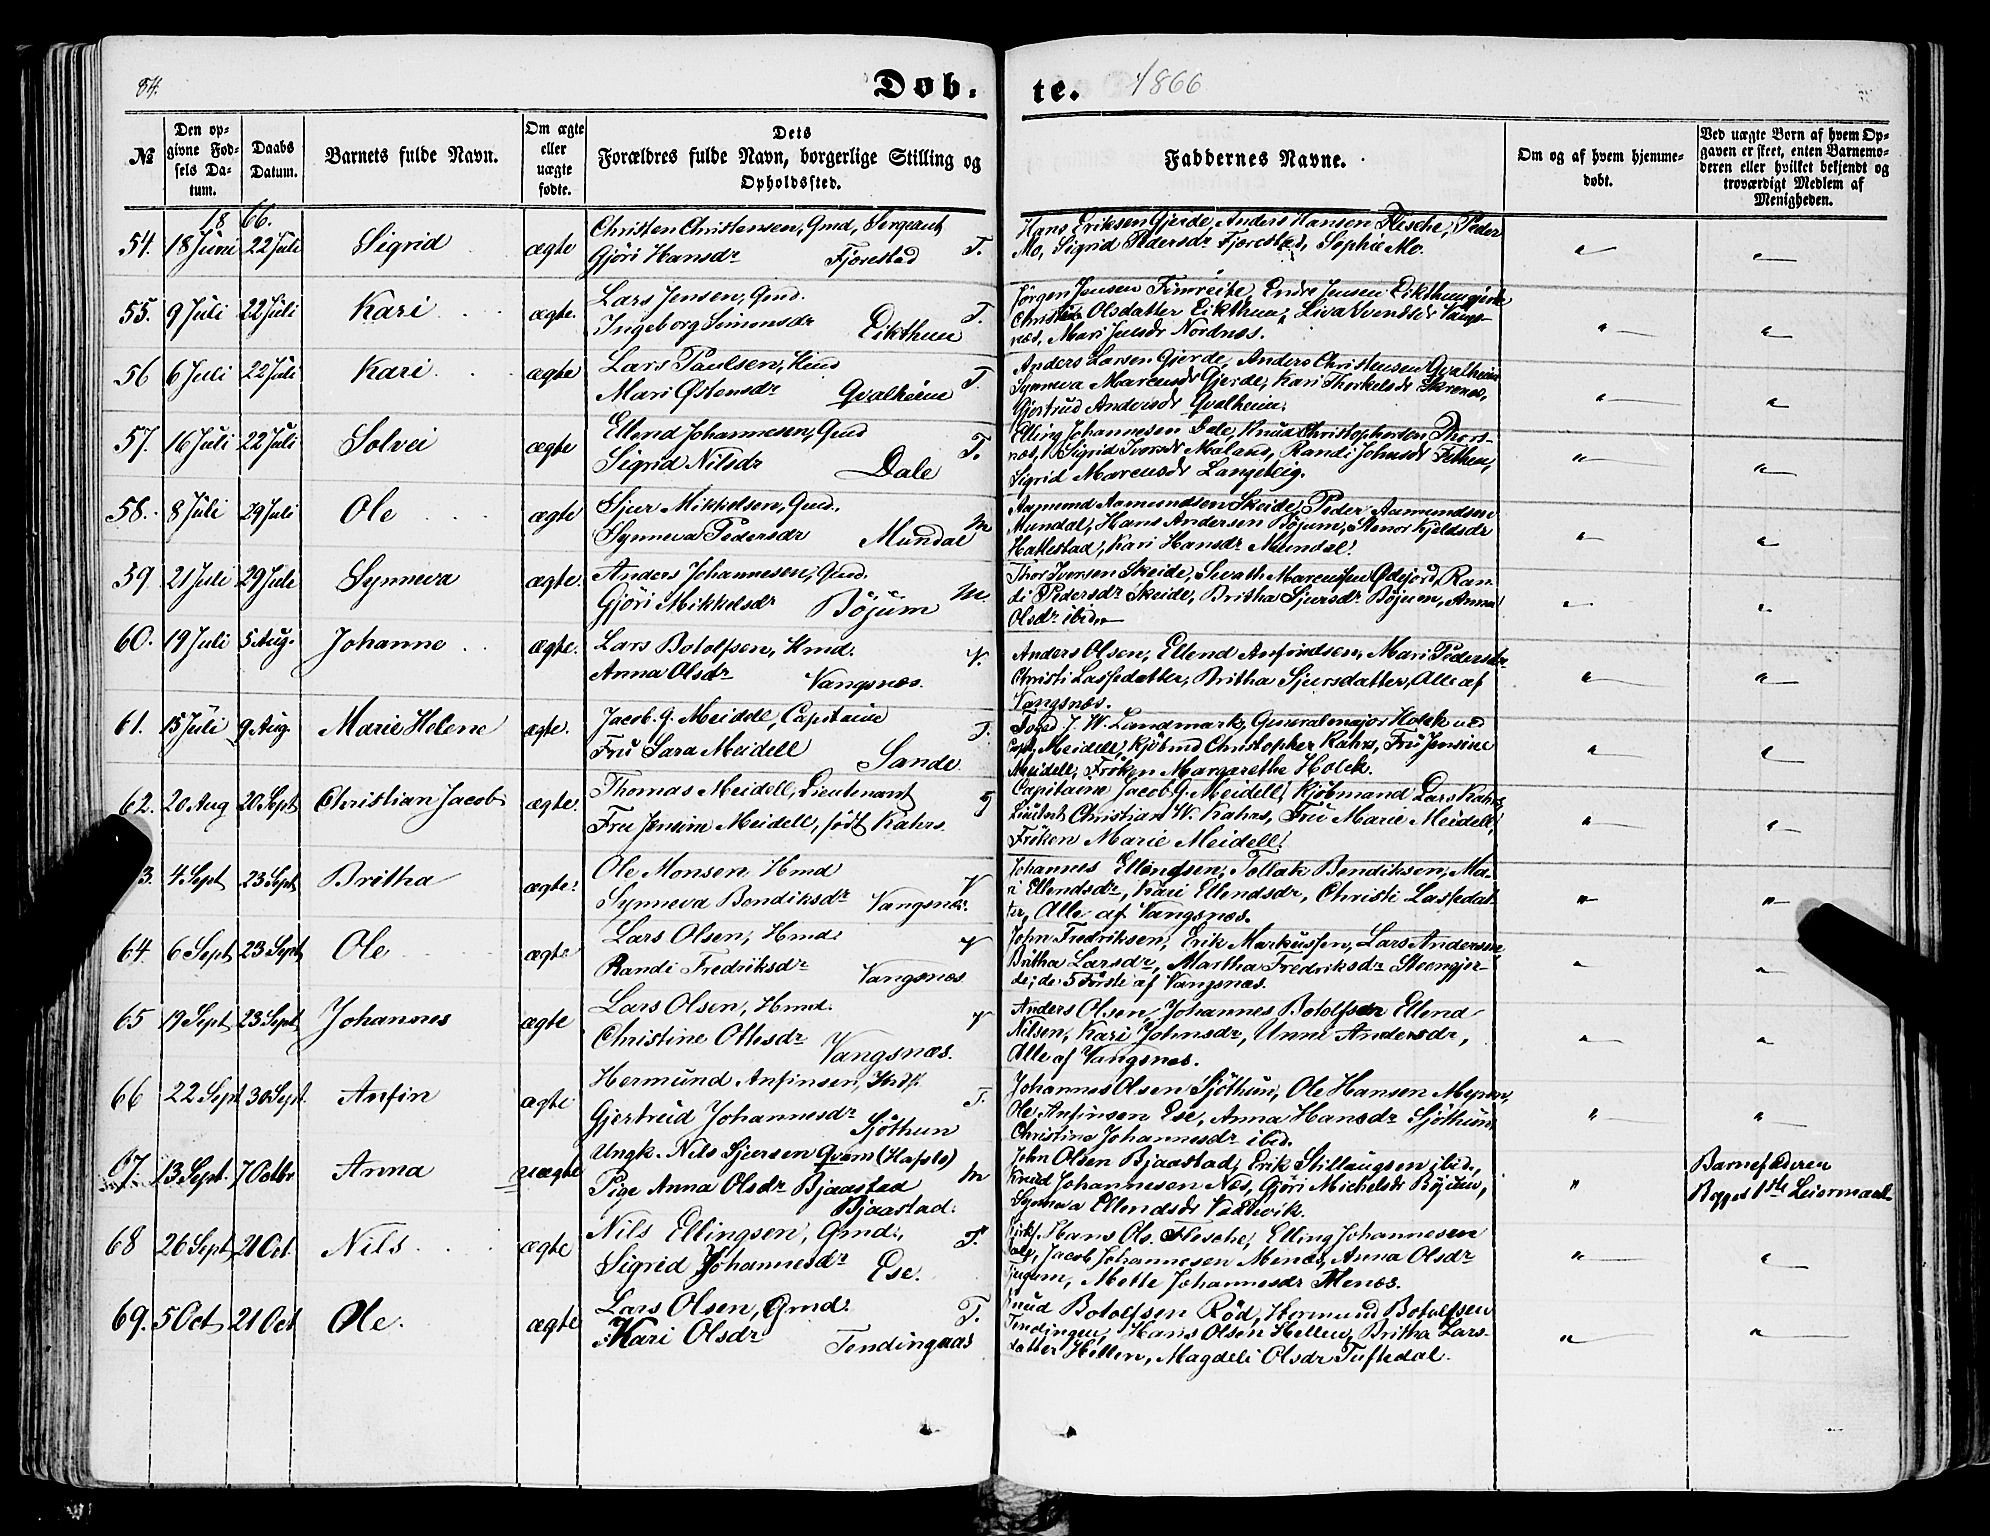 84.
Døb-
te. 1866
№
Den op-
givne Fød-
sels Da-
tum.
Daabs
Datum.
Barnets fulde Navn.
Om ægte
eller
uægte
fødte.
Dets
Forældres fulde Navn, borgerlige Stilling og
Opholdssted.
Faddernes Navne.
Om og af hvem hjemme-
døbt.
Ved uægte Børn af hvem Op-
gaven er skeet, enten Barnemo-
deren eller hvilket bekjendt og
troværdigt Medlem af
Menigheden.
1866.
54. 18 Juni 22 Juli Sigrid ægte Christen Christensen, Gmd, Sergeant
Gjöri Hansdr Fjærestad T.
Hans Eriksen Gjerde, Anders Hansen Flesche, Peder
Mo, Sigrid Pedersdr Fjærestad, Sophie Mo.
55. 9 Juli 22 Juli Kari ægte. Lars Jensen, Gmd.
Ingeborg Simonsdr Eikthun T.
Jörgen Jensen Finreite, Endre Jensen Eikthungjerde
Olsdatter Eikthun, Liva Svendsdr Vangs-
næs, Mari Juulsdr Nordnæs.
56 6 Juli 22 Juli Kari ægte Lars Paulsen, Hmd
Mari Östensdr Qvalheim T.
Anders Larsen Gjerde, Anders Christensen Qvalheim
Synneva Marcusdr Gjerde, Kari Thorkelsdr Skrenes,
Gjertrud Andersdr Qvalheim.
57. 16 Juli 22 Juli Solvei ægte Ellend Johannesen, Gmd
Sigrid Nilsdr Dale T.
Elling Johannesen Dale, Knud Christophersen Thors-
næs, Sigrid Iversdr Maland, Randi Johnsdr Fethun,
Sigrid Marcusdr Langeteig.
58. 8 Juli 29 Juli Ole ægte Sjur Mikkelsen, Gmd.
Synneva Pedersdr Mundal M
Aamund Aamundsen Skeide, Peder Aamundsen
Mundal, Hans Andersen Böjum, Stenor Kjeldsdr
Hatlestad, Kari Hansdr Mundal.
59. 21 Juli 29 Juli Synneva ægte. Anders Johannesen, Gmd.
Gjöri Mikkelsdr Böjum M.
Thor Iversen Skeide, Sivath Marcussen Ödejord, Ran-
di Pedersdr Skeide, Britha Sjursdr Böjum, Anna
Olsdr ibid.
60. 19 Juli 5 Aug. Johanne ægte. Lars Botolfsen, Hmd.
Anna Olsdr Vangsnæs. V.
Anders Olsen, Ellend Anfindsen, Mari Pedersdr
Christi Lassedatter, Britha Sjursdatter, Alle af
Vangsnæs.
61. 15 Juli 9 Aug. Marie Helene ægte. Jacob G. Meidell, Capitaine
Fru Sara Meidell Sande. T.
Foged J. W. Landmark, Generalmajor Holck ved
Capt. Meidell, Kjöbmd Christopher Kahrs, Fru Jensine
Meidell, Fröken Margarethe Holck.
62. 20 Aug 20 Sept Christian Jacob ægte. Thomas Meidell, Lieutenant
Fru Jensine Meidell, född Kahrs.
Capitaine Jacob G. Meidell, Kjöbmand Lars Kahrs,
Christian W. Kahrs, Fru Marie Meidell,
Fröken Marie Meidell.
3. 4 Sept 23 Sept Britha ægte. Ole Monsen Hmd
Synneva Bendiksdr Vangsnæs. V
Johannes Ellendsen, Tollak Bendiksen, Ma-
ri Ellendsdr, Kari Ellendsdr, Christi Lassedat-
ter, Alle af Vangsnæs.
64. 6 Sept 23 Sept Ole ægte Lars Olsen, Hmd.
Randi Fredriksdr Vangsnæs V
John Fredriksen, Erik Markussen, Lars Andersen
Britha Larsdr, Martha Fredriksdr Steengjer-
de; de 5 Förste af Vangsnæs.
65 19 Sept 23 Sept Johannes ægte Lars Olsen, Hmd.
Christine Ottesdr Vangsnæs. V
Anders Olsen, Johannes Botolfsen Ellend
Nilsen, Kari Johnsdr, Unni Andersdr,
Alle af Vangsnæs.
66 22 Sept 30 Sept. Anfin ægte Hermund Anfinsen,
Gjertrud Johannesdr Sjöthun T.
Johannes Olsen Sjöthun, Ole Hansen Meyrun,
Ole Anfinsen Ese, Anna Hansdr Sjöthun,
Christina Johannesdr ibid.
67. 13 Sept. 7 Octbr Anna uægte Ungk. Nils Sjursen Qvam (Hafslo)
Pige Anna Olsdr Bjaastad
Bjaastad. M
John Olsen Bjaastad, Erik Stillaugsen ibid,
Knud Johannesen Næs, Gjöri Michelsdr Böjum,
Synneva Ellendsdr Vattevik.
Barnefaderen
Begges 1ste Leiermaal
68 26 Sept 21 Oct. Nils ægte Nils Ellingsen, Gmd.,
Sigrid Johannesdr Ese. T.
Kirks. Hans Ols. Flesche, Elling Johannesen
Dale, Jacob Johannesen Menæs, Anna Olsdr
Tjugum, Mette Johannesdr Menæs.
69. 5 Oct 21 Oct Ole. ægte Lars Olsen, Gmd.
Kari Olsdr Tendingaas T.
Knud Botolfsen Röd, Hermund Botolfsen
Tendingen, Hans Olsen Hellen, Britha Lars-
datter Hellen, Magdeli Olsdr Tuftedal.